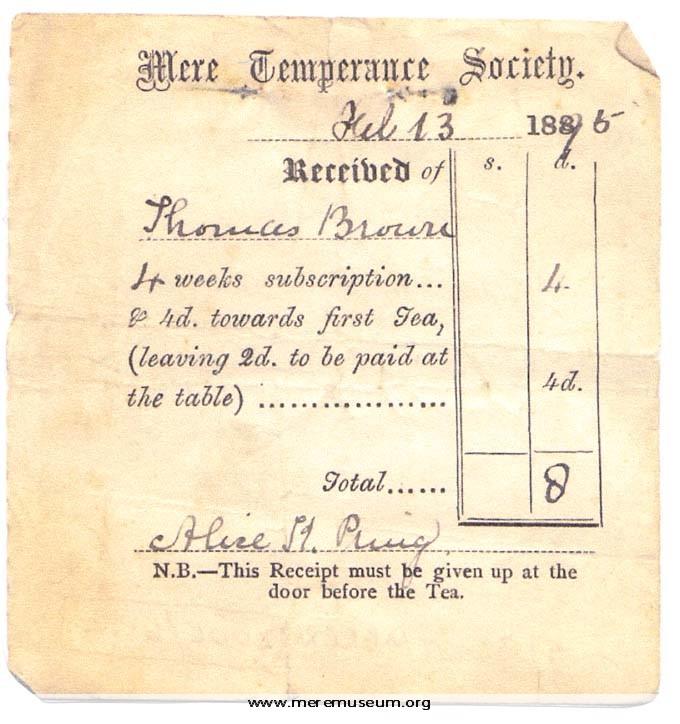 Mere Temperance Society.
Feb 13 1895
Received of s. d.
Thomas Brown
4 weeks subscription... 4
& 4d. towards first Tea,
(leaving 2d. to be paid at
the table) .................. 4d.
Total...... 8
Alice H. Pring
N.B.—This Receipt must be given up at the
door before the Tea.
www.meremuseum.org